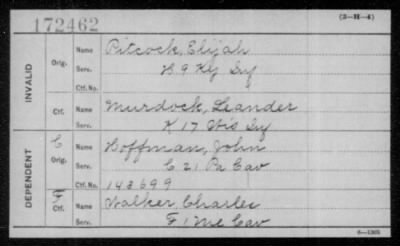 172462
(3-H-4)
INVALID
Orig. Name Pitcock, Elijah
Serv. H 9 Ky Inf
Ctf. No.
Ctf. Name Murdock, Leander
Serv. K 17 Wis Inf
DEPENDENT
C Orig. Name Hoffman, John
Serv. C 21 Pa Cav
Ctf. No. 143699
F Ctf. Name Walker, Charles
Serv. F 1 Me Cav
6-1305